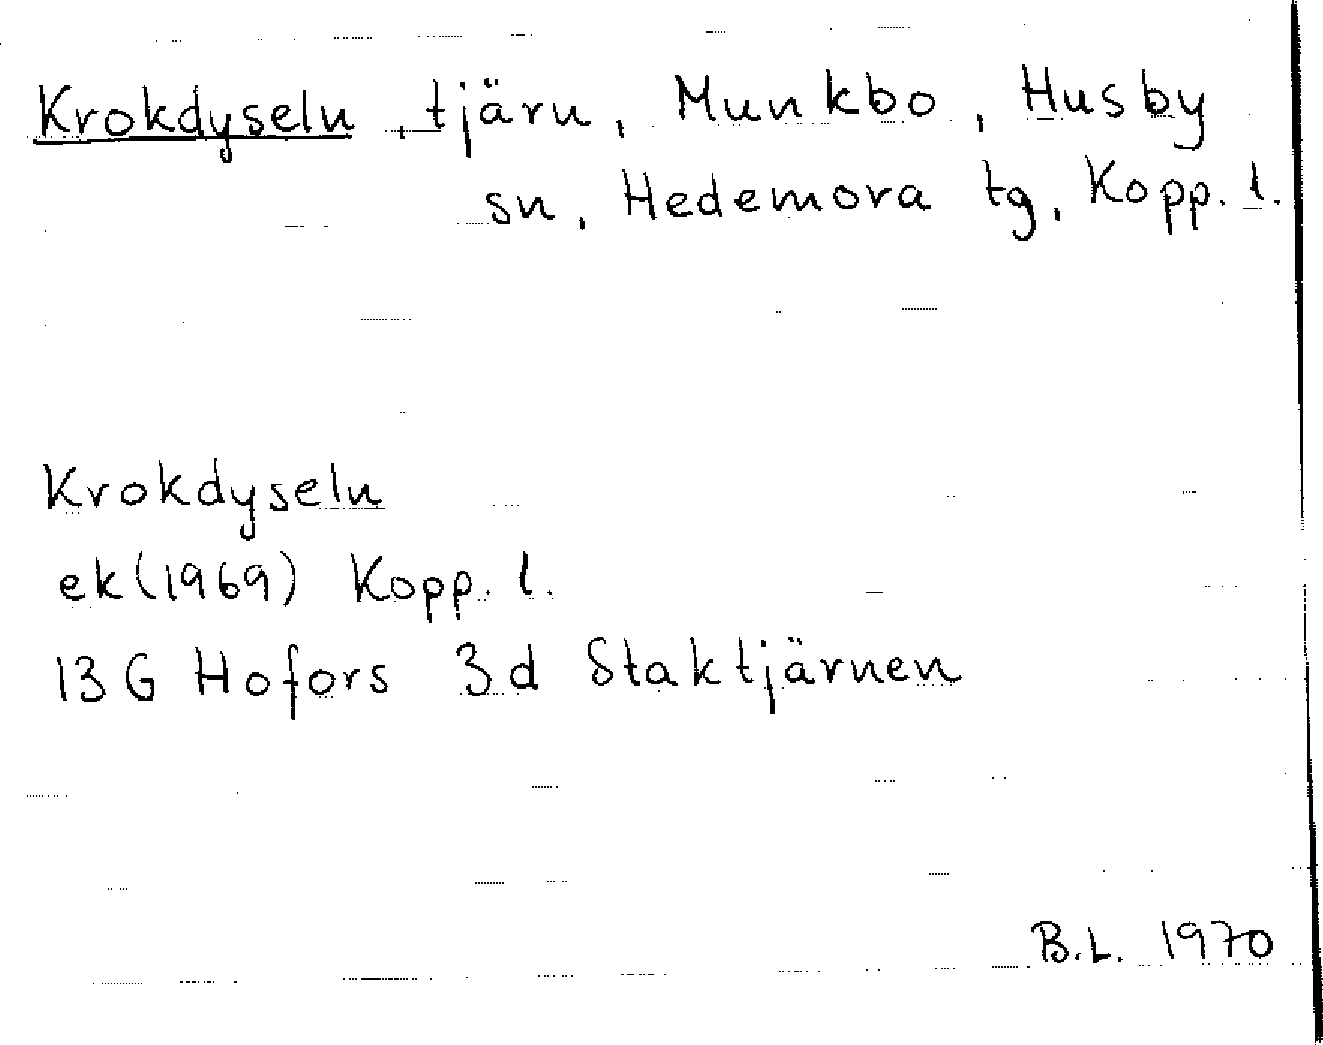 Krokdyseln, tjärn, Munkbo, Husby
sn, Hedemora tg, Kopp. l.
Krokdyseln
ek(1969) Kopp. l.
13G Hofors 3d Staktjärnen
B.L. 1970